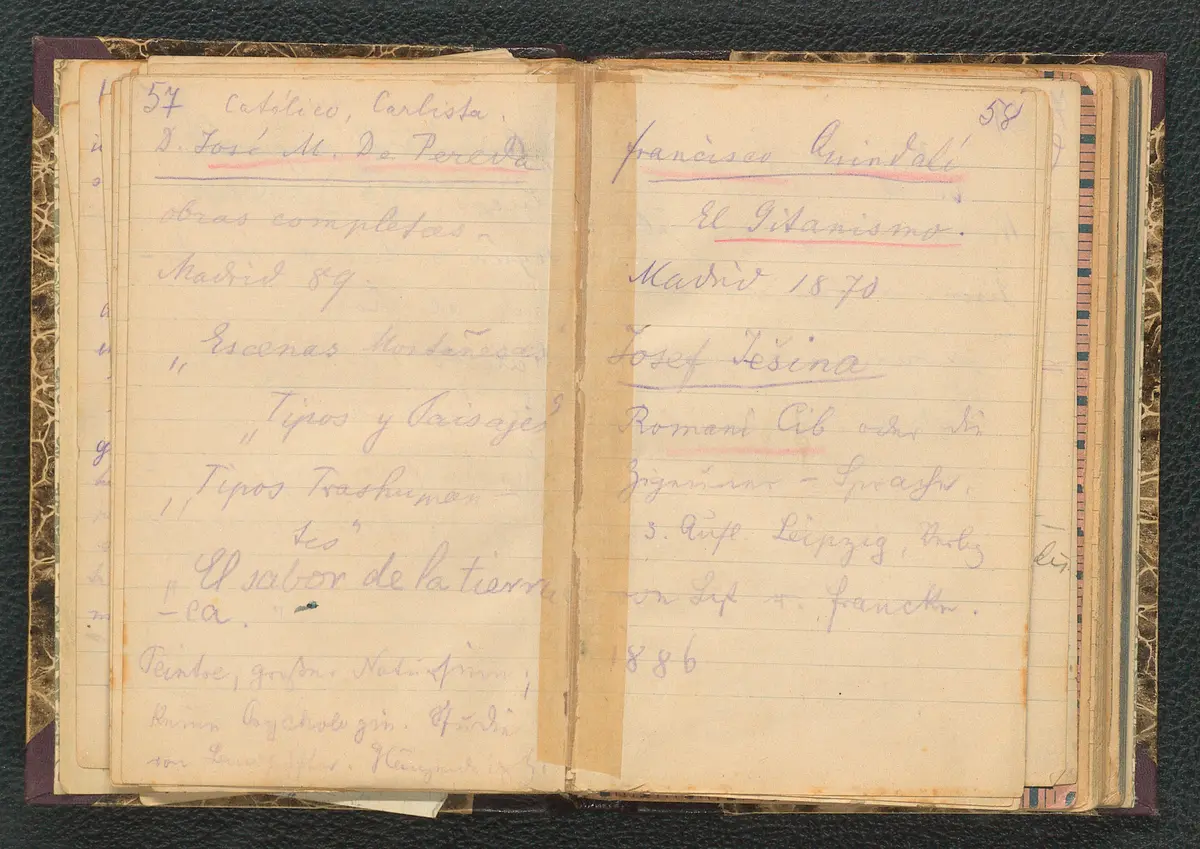 57 Católico, Carlista.
D. José M. De Pereda
obras completas.
Madrid 89.
„Escenas Montañesas
„Tipos y Paisajes"
„Tipos Trashuman-
tes"
„El sabor de la tierru
-ca."
Peintre, großer Natursinn;
Keine Psychologie. Studie
von
58
Francisco Quindalé
El Gitanismo.
Madrid 1870
Josef Ješina
Romani Cib oder die
Zigeuner-Sprache.
3. Aufl. Leipzig, Verlag
von List u. Francke.
1886